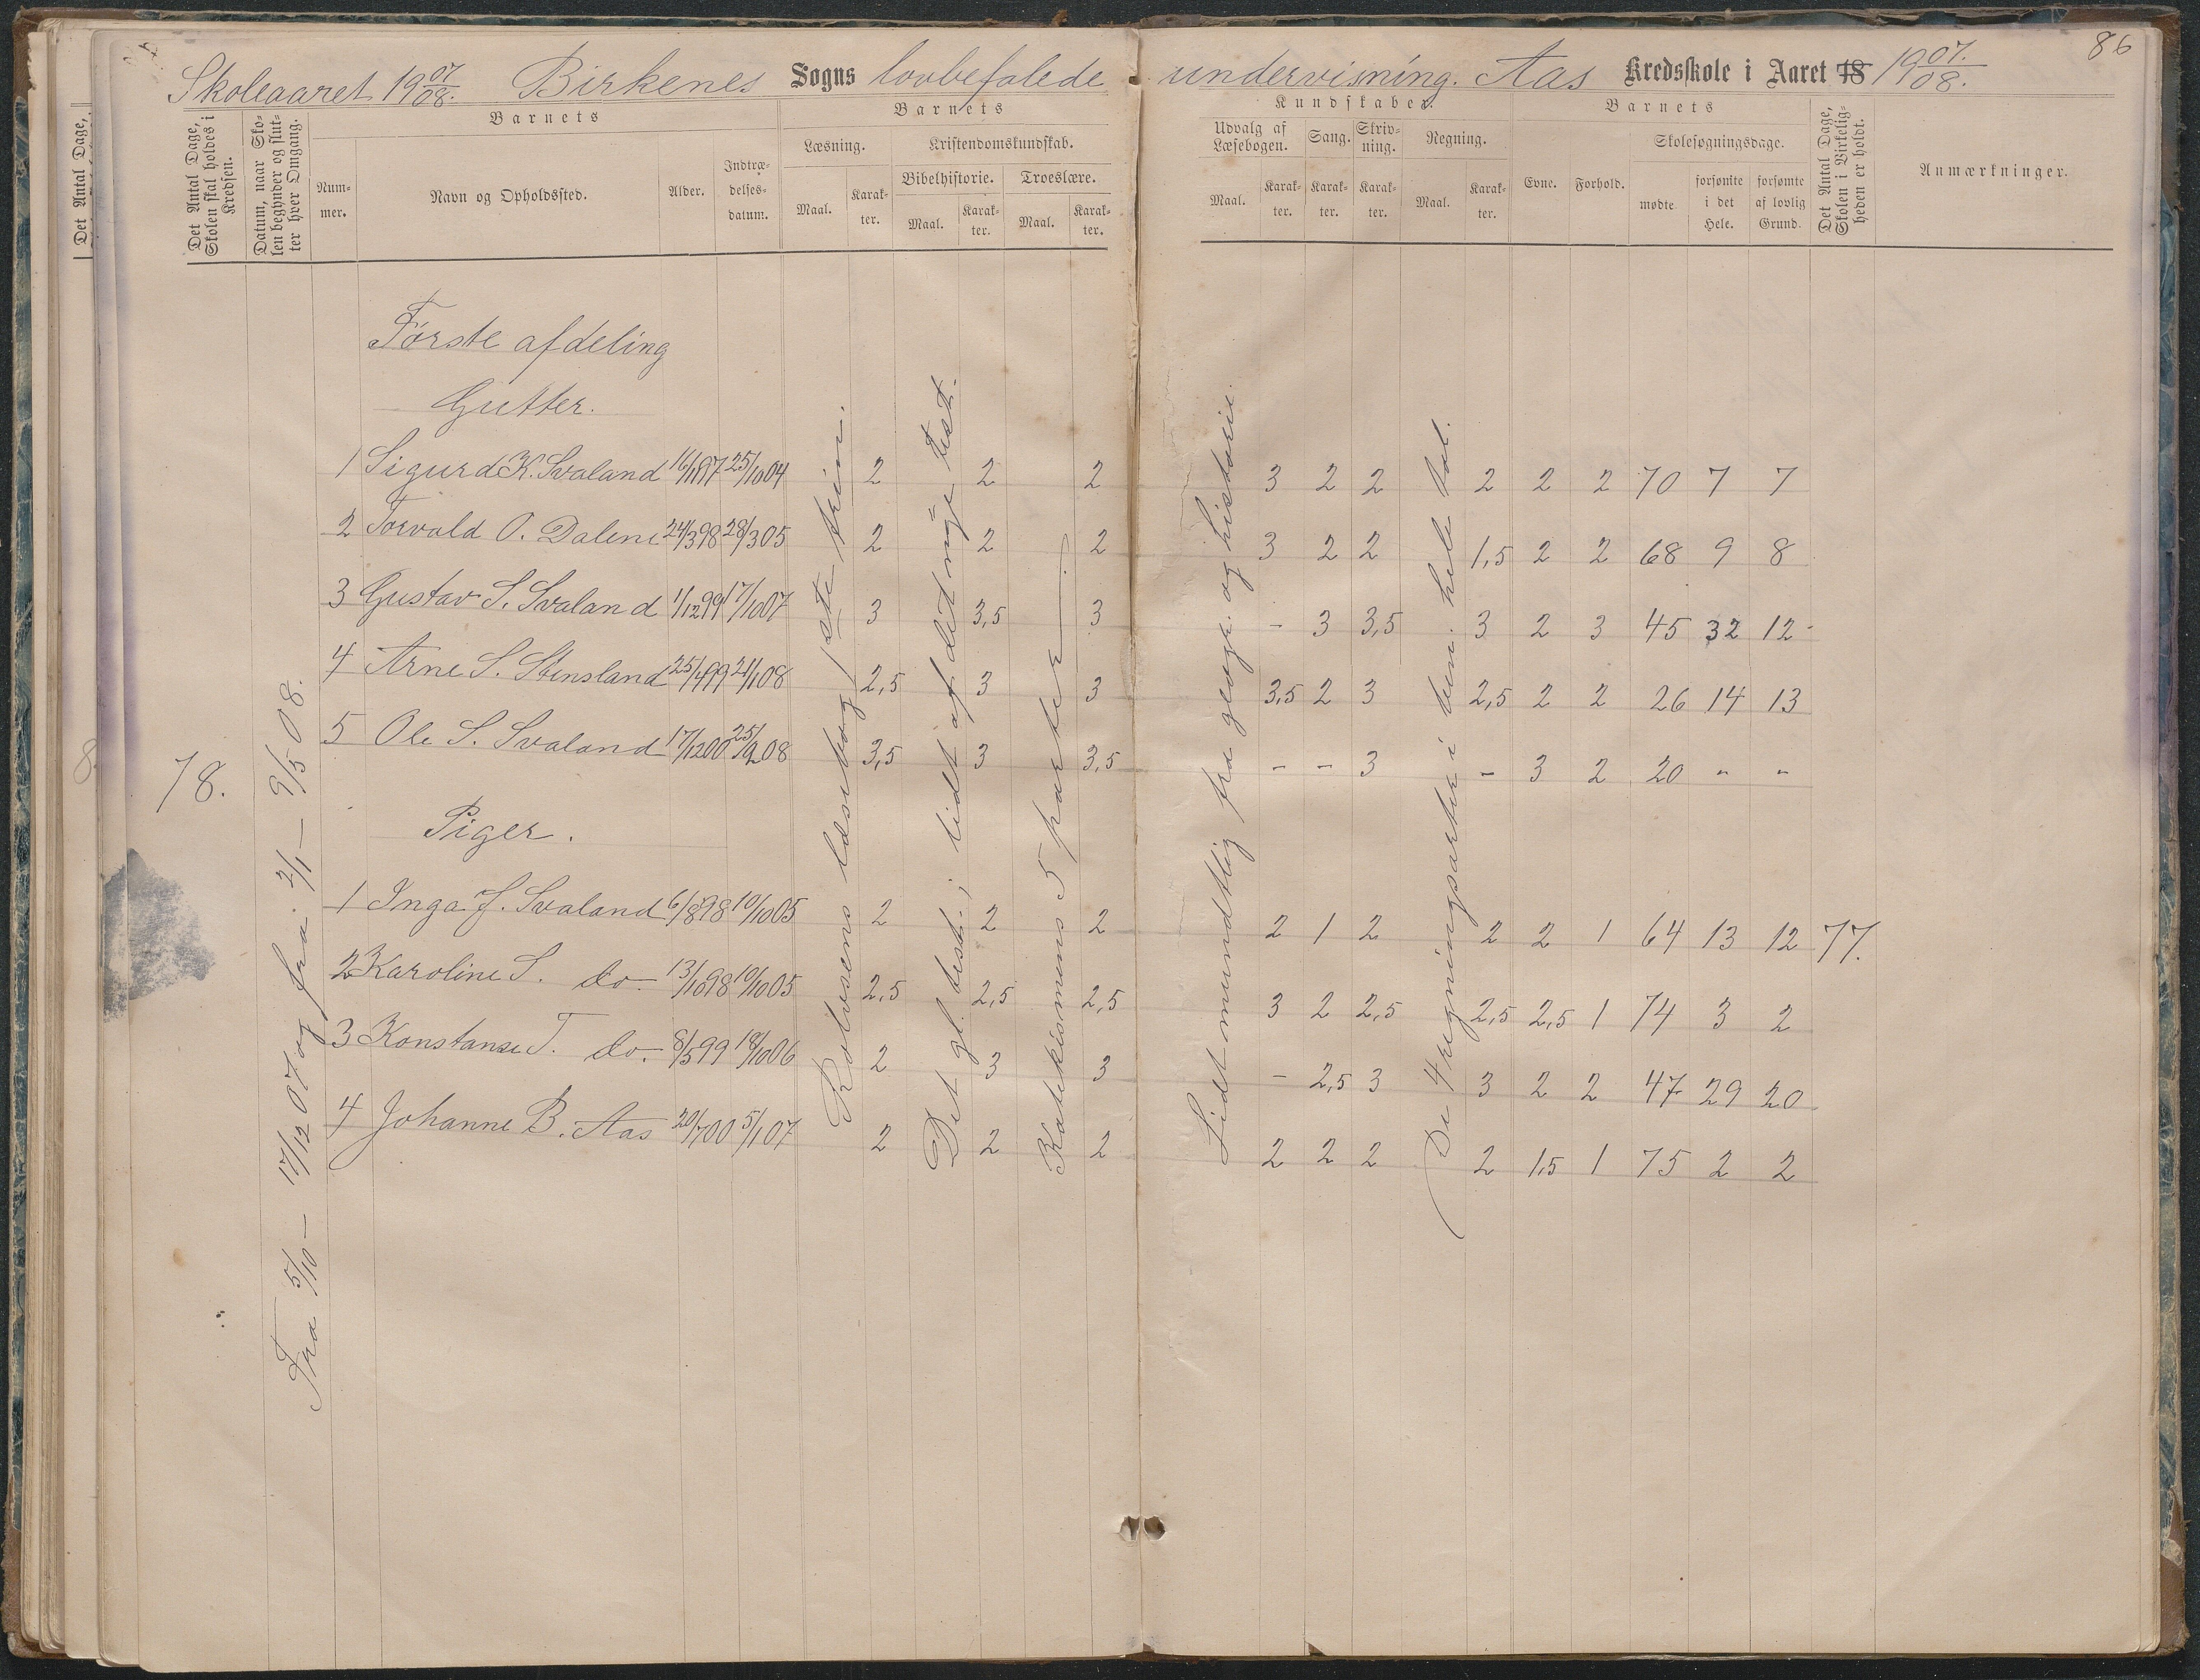 86
Skoleaaret 19 07/08. Birkenes Sogns lovbefalede undervisning. Aas Kredsskole i Aaret 18 19 07./08.
Det Antal Dage, Skolen skal holdes i Kredsen.
Datum, naar Skolen begynder og slutter hver Omgang.
Barnets
Nummer.
Navn og Opholdssted.
Alder.
Indtrædelsesdatum.
Barnets
Læsning.
Maal.
Karakter.
Kristendomskundskab.
Bibelhistorie.
Maal.
Karakter.
Troeslære.
Maal.
Karakter.
Kundskaber.
Udvalg af Læsebogen.
Maal.
Karakter.
Sang.
Karakter.
Skrivning.
Karakter.
Regning.
Maal.
Karakter.
Barnets
Evne.
Forhold.
Skolesøgningsdage.
mødte
forsømte i det Hele.
forsømte af lovlig Grund.
Det Antal Dage, Skolen i Virkeligheden er holdt.
Anmærkninger.
Det Antal Dage,
Første afdeling
Gutter.
1 Sigurd K. Svaland 16/1 97 25/10 04 2 2 2 3 2 2 2 2 2 70 7 7
2 Torvald O. Dalene 24/3 98 28/3 05 2 2 2 3 2 2 1,5 2 2 68 9 8
3 Gustav S. Svaland 1/12 99 17/10 07 3 3,5 3 - 3 3,5 3 2 3 45 32 12
4 Arne S. Stensland 25/4 99 21/1 08 2,5 3 3 3,5 2 3 2,5 2 2 26 14 13
5 Ole S. Svaland 17/12 00 25/2 08 3,5 3 3,5 - - 3 - 3 2 20 " "
78.
Piger.
1 Inga J. Svaland 6/8 98 10/10 05 2 2 2 2 1 2 2 2 1 64 13 12 77.
2 Karoline S. do. 13/10 98 10/10 05 2,5 2,5 2,5 3 2 2,5 2,5 2,5 1 74 3 2
3 Konstanse T. do. 8/5 99 18/10 06 2 3 3 - 2,5 3 3 2 2 47 29 20
4 Johanne B. Aas 20/7 00 5/1 07 2 2 2 2 2 2 2 1,5 1 75 2 2
Fra 5/10 – 17/12 07 og fra 2/1 – 9/5 08.
Rolvsens læsebog 1ste trin.
Det gl. test.; lidt af det nye test.
Katekismens 5 parter
Lidt mundtlig fra geogr. og historie.
De 4 regningsarter i ben. hele tal.